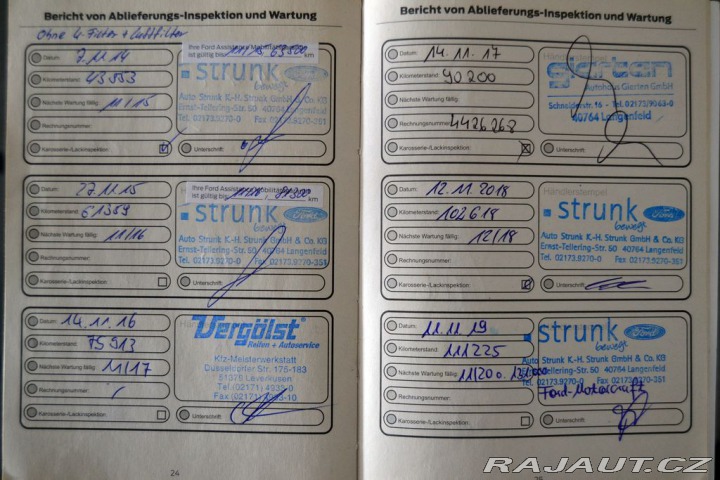 Bericht von Ablieferungs-Inspektion und Wartung
Ohne + Luftfilter
Datum: 7.11.14
Kilometerstand: 43553
Nächste Wartung fällig: 11/15
Rechnungsnummer:
Karosserie-/Lackinspektion:
Unterschrift:
Ihre Ford Assistance Mobilitäts
ist gültig bis 63500 km
strunk Ford
bewegt
Auto Strunk K.-H. Strunk GmbH & Co. KG
Ernst-Tellering-Str. 50 40764 Langenfeld
Tel. 02173.9270-0 Fax 02173.9270-351
Datum: 27.11.15
Kilometerstand: 61359
Nächste Wartung fällig: 11/16
Rechnungsnummer:
Karosserie-/Lackinspektion:
Unterschrift:
Ihre Ford Assistance Mobilitäts
ist gültig bis km
strunk Ford
bewegt
Auto Strunk K.-H. Strunk GmbH & Co. KG
Ernst-Tellering-Str. 50 40764 Langenfeld
Tel. 02173.9270-0 Fax 02173.9270-351
Datum: 14.11.16
Kilometerstand: 75513
Nächste Wartung fällig: 11/17
Rechnungsnummer:
Karosserie-/Lackinspektion:
Unterschrift:
Vergölst
Reifen + Autoservice
Kfz-Meisterwerkstatt
Düsseldorfer Strasse 175-183
51379 Leverkusen
Tel. (02171) 4939-0
Fax (02171)
24
Bericht von Ablieferungs-Inspektion und Wartung
Datum: 14.11.17
Kilometerstand: 90200
Nächste Wartung fällig:
Rechnungsnummer: 4426268
Karosserie-/Lackinspektion:
Unterschrift:
gierten
Autohaus Gierten GmbH
Schneiderstr. 16 - Tel. 02173/9063-0
40764 Langenfeld
Datum: 12.11.2018
Kilometerstand: 102618
Nächste Wartung fällig: 12/18
Rechnungsnummer:
Karosserie-/Lackinspektion:
Unterschrift:
Händlerstempel
strunk Ford
bewegt
Auto Strunk K.-H. Strunk GmbH & Co. KG
Ernst-Tellering-Str. 50 40764 Langenfeld
Tel. 02173.9270-0 Fax 02173.9270-351
Datum: 11.11.19
Kilometerstand: 111225
Nächste Wartung fällig: 11/20 o.
Rechnungsnummer:
Karosserie-/Lackinspektion:
Unterschrift:
strunk Ford
bewegt
Auto Strunk K.-H. Strunk GmbH & Co. KG
Ernst-Tellering-Str. 50 40764 Langenfeld
Ford-Motorcraft
RAJAUT.CZ